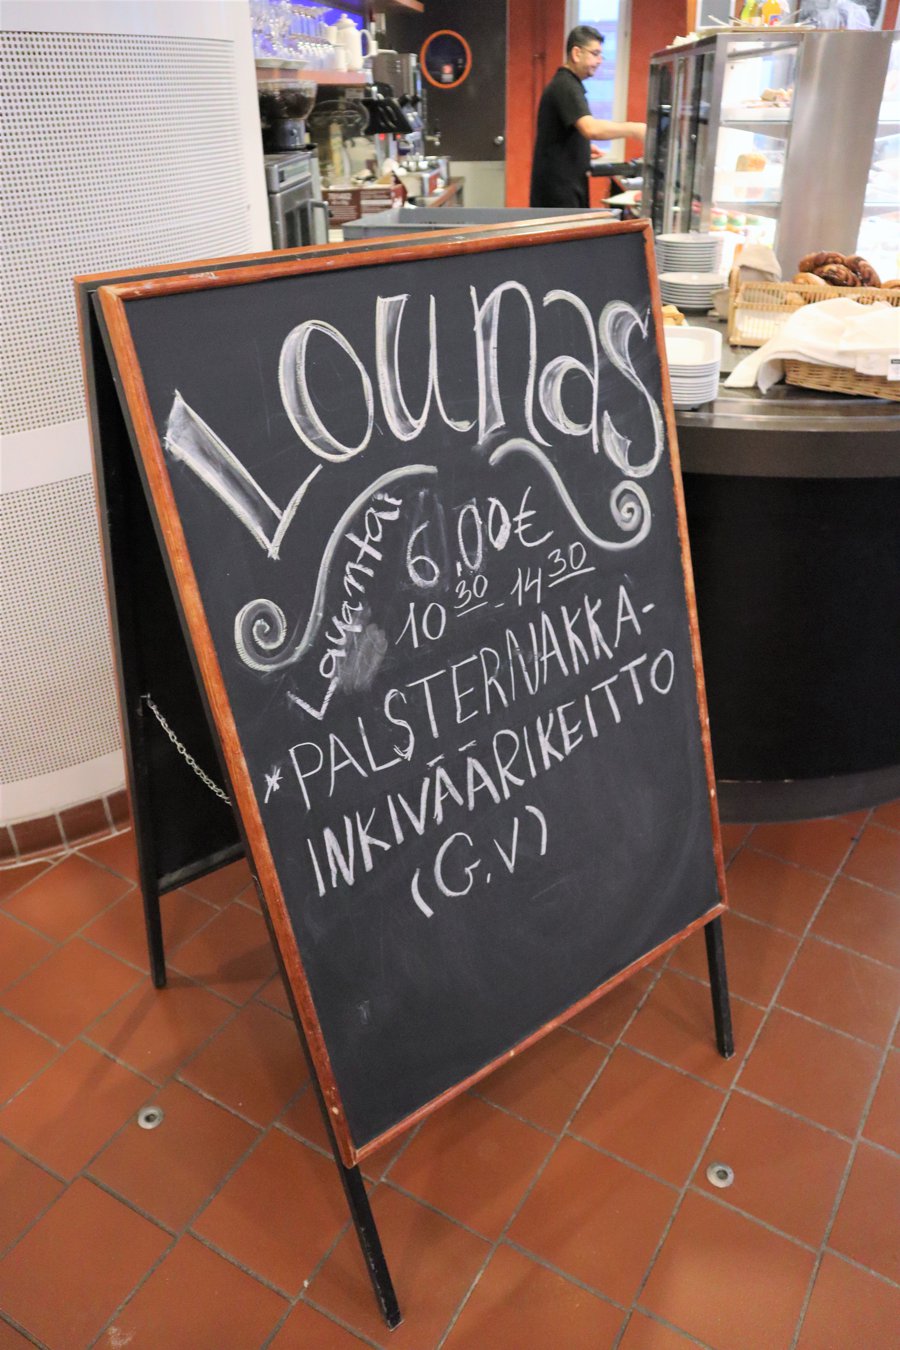 LOUNAS
Lauantai
6,00€
10³⁰-14³⁰
*PALSTERNAKKA-
INKIVÄÄRIKEITTO
(G,V)